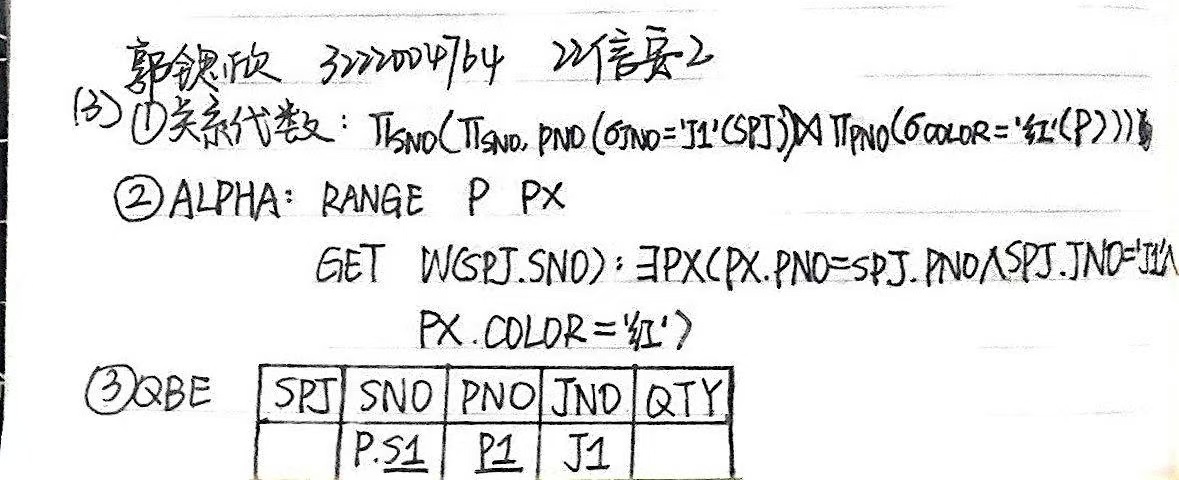 郭锶欣 3222004764 22信安2
(3) ①关系代数: πSNO(πSNO, PNO(σJNO='J1'(SPJ))⋈πPNO(σCOLOR='红'(P)))
②ALPHA: RANGE P PX
GET W(SPJ.SNO): ∃PX(PX.PNO=SPJ.PNO∧SPJ.JNO='J1'∧
PX.COLOR='红')
③QBE SPJ SNO PNO JNO QTY
P.S1 P1 J1